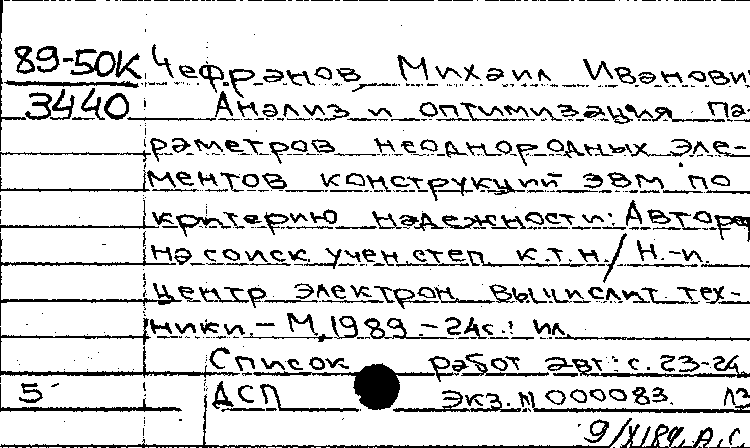 89-50К Чефранов, Михаил Иванови
3440 Анализ и оптимизация па
раметров неоднородных эле-
ментов конструкций ЭВМ по
критерию надежности: Авторе
на соиск. учен. степ. к.т.н. / Н.-и.
центр электрон. вычислит. тех-
ники. - М., 1989. - 24с.: ил.
Список работ авт.: с. 23-24
5 ДСП Экз. N 000083.
9/XI89. А.С.